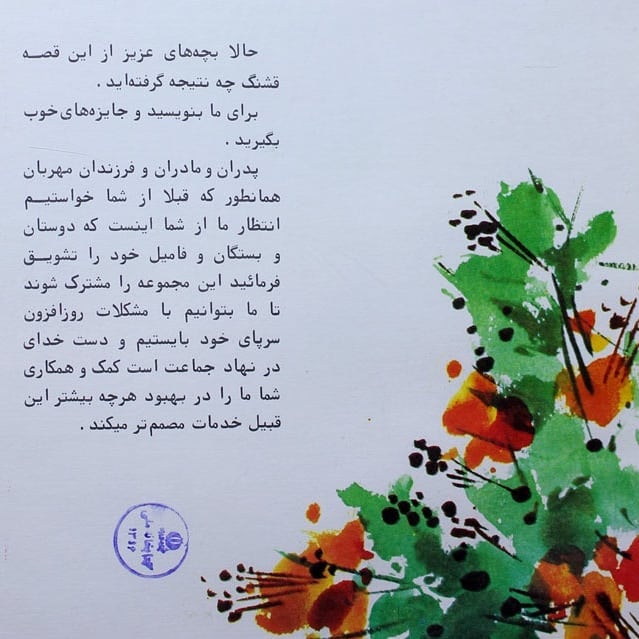 حالا بچه‌های عزیز از این قصه
قشنگ چه نتیجه گرفته‌اید .
برای ما بنویسید و جایزه‌های خوب
بگیرید .
پدران و مادران و فرزندان مهربان
همانطور که قبلا از شما خواستیم
انتظار ما از شما اینست که دوستان
و بستگان و فامیل خود را تشویق
فرمائید این مجموعه را مشترک شوند
تا ما بتوانیم با مشکلات روزافزون
سرپای خود بایستیم و دست خدای
در نهاد جماعت است کمک و همکاری
شما ما را در بهبود هرچه بیشتر این
قبیل خدمات مصمم‌تر میکند .